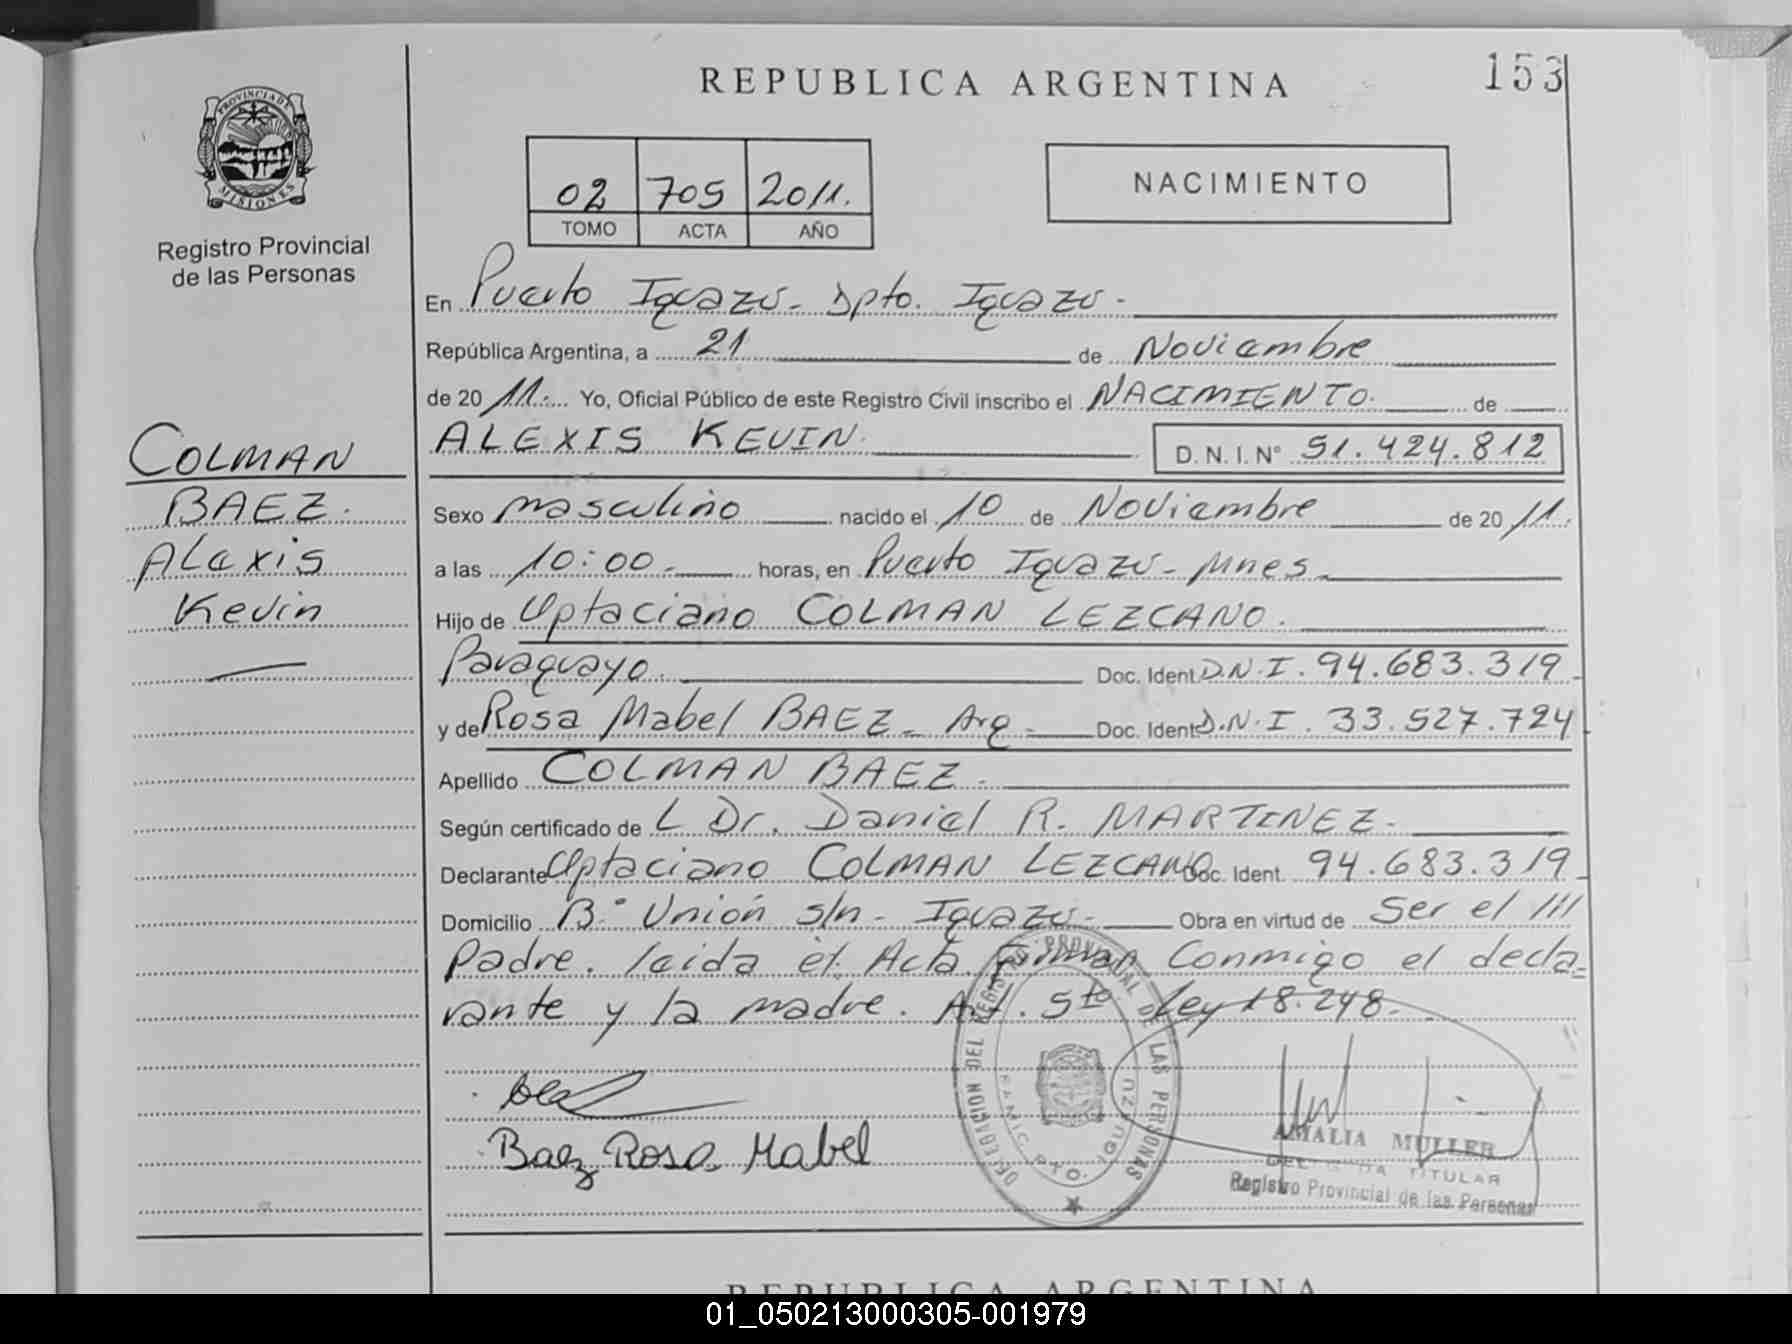 REPUBLICA ARGENTINA
153
PROVINCIA DE
MISIONES
Registro Provincial
de las Personas
02 705 2011.
TOMO ACTA AÑO
NACIMIENTO
En Puerto Iguazú - Dpto. Iguazú -
República Argentina, a 21 de Noviembre
de 20 11. Yo, Oficial Público de este Registro Civil inscribo el NACIMIENTO. de
ALEXIS KEVIN. D. N. I. N° 51.424.812
COLMAN
BAEZ.
Alexis
Kevin
Sexo masculino nacido el 10 de Noviembre de 20 11.
a las 10:00 - horas, en Puerto Iguazú - Mnes -
Hijo de Optaciano COLMAN LEZCANO.
Paraguayo. Doc. Ident. D.N.I. 94.683.319
y de Rosa Mabel BAEZ - Arg - Doc. Ident. D.N.I. 33.527.724
Apellido COLMAN BAEZ.
Según certificado de L Dr. Daniel R. MARTINEZ -
Declarante Optaciano COLMAN LEZCANO Doc. Ident. 94.683.319
Domicilio B° Unión s/n - Iguazú - Obra en virtud de Ser el ///
Padre. leida el Acta Firman Conmigo el decla=
rante y la madre. Art. 5to Ley 18.248.
Baez Rosa Mabel
DELEGACION DEL REGISTRO PROVINCIAL DE LAS PERSONAS
PTO. IGUAZU
AMALIA MULLER
DELEGADA TITULAR
Registro Provincial de las Personas
REPUBLICA ARGENTINA
01_050213000305-001979